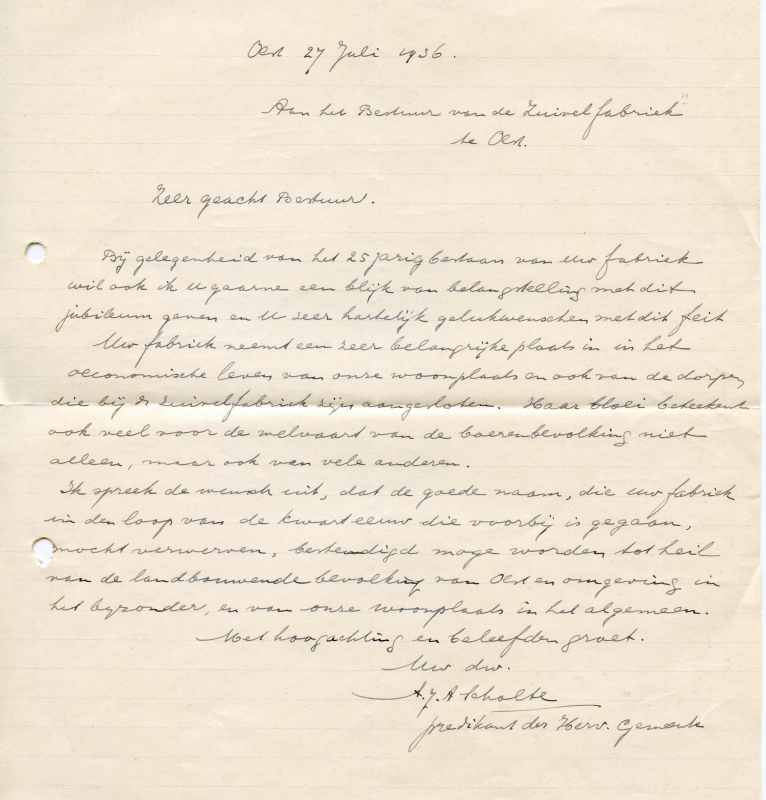 Olst 27 Juli 1936.
Aan het Bestuur van de Zuivelfabriek
te Olst.
Zeer geacht Bestuur.
Bij gelegenheid van het 25 jarig bestaan van Uw fabriek
wil ook ik U gaarne een blijk van belangstelling met dit
jubileum geven en U zeer hartelijk gelukwenschen met dit feit
Uw fabriek neemt een zeer belangrijke plaats in in het
oeconomische leven van onze woonplaats en ook van de dorpen,
die bij de Zuivelfabriek zijn aangesloten. Haar bloei beteekent
ook veel voor de welvaart van de boerenbevolking niet
alleen, maar ook van vele anderen.
Ik spreek de wensch uit, dat de goede naam, die uw fabriek
in den loop van de kwart eeuw die voorbij is gegaan,
mocht verwerven, bestendigd moge worden tot heil
van de landbouwende bevolking van Olst en omgeving in
het byzonder, en van onze woonplaats in het algemeen.
Met hoogachting en beleefden groet.
Uw dw.
A. J. A Scholte
predikant der Herv. Gemeente